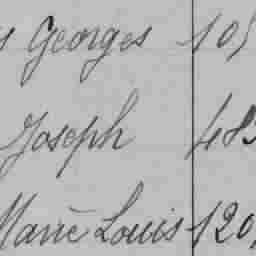 s Georges 105
Joseph 485
Marie Louis 120